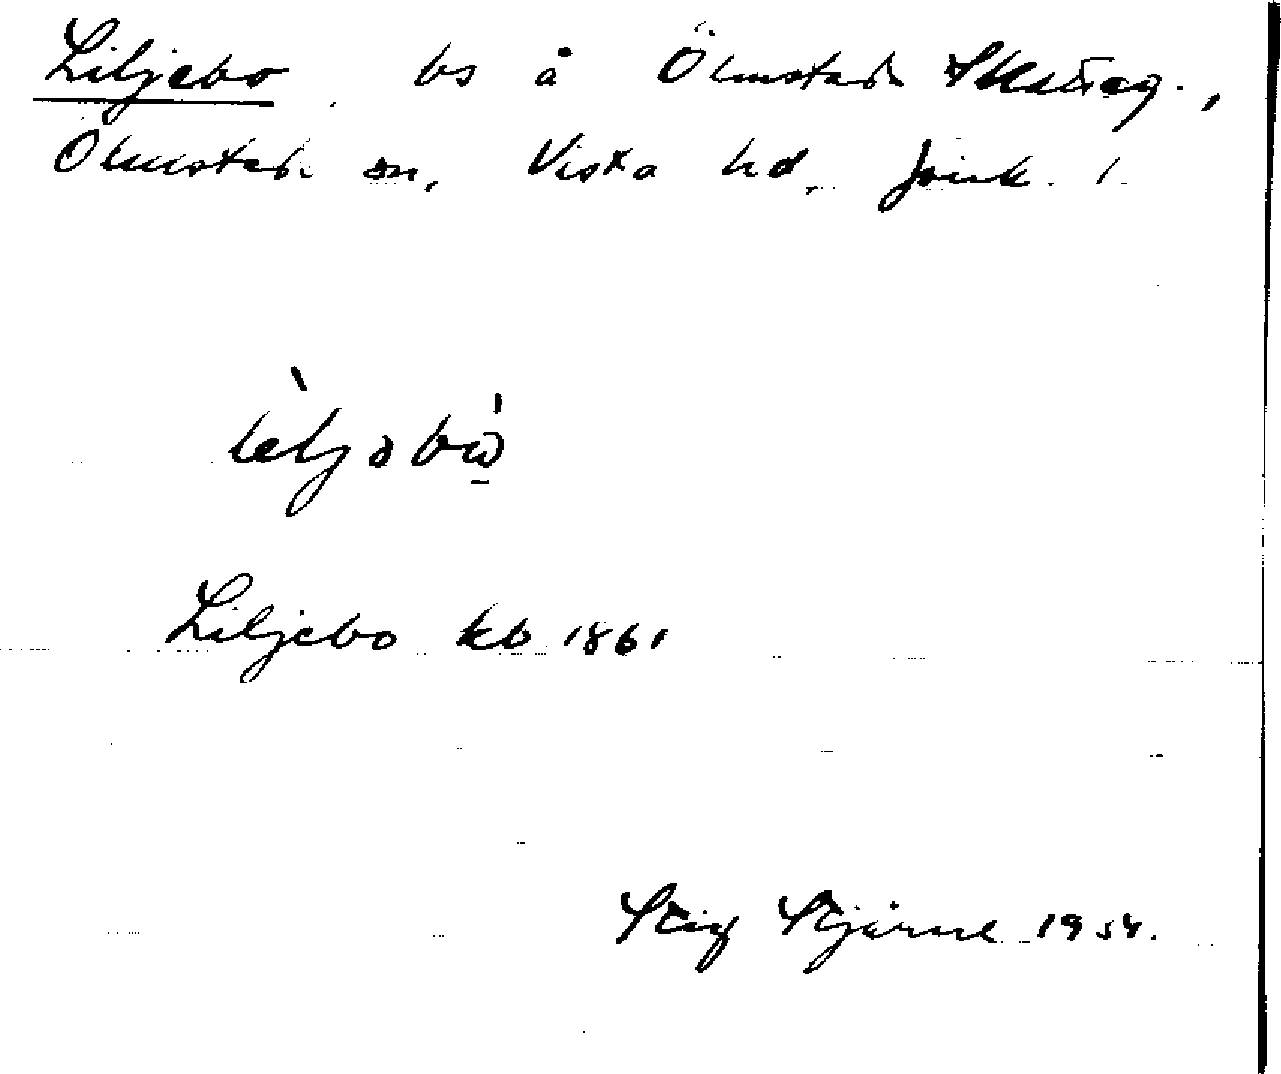 Liljebo, bs å Ölmstads Skatteg.,
Ölmstads sn, Vista hd, Jönk. l.
Liljebo kb 1861
Stig Stjärne 1954.